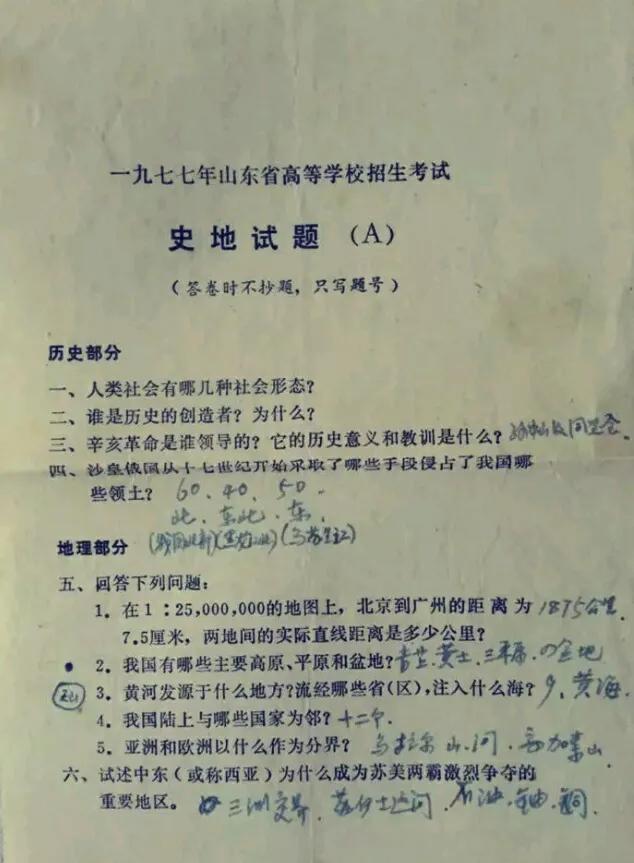 一九七七年山东省高等学校招生考试
史地试题（A）
（答卷时不抄题，只写题号）
历史部分
一、人类社会有哪几种社会形态？
二、谁是历史的创造者？为什么？
三、辛亥革命是谁领导的？它的历史意义和教训是什么？ 同盟会.
四、沙皇俄国从十七世纪开始采取了哪些手段侵占了我国哪
些领土？ 60、40、50
北、东北、东、
地理部分
五、回答下列问题：
1．在1：25,000,000的地图上，北京到广州的距离为 1875公里
7.5厘米，两地间的实际直线距离是多少公里？
2．我国有哪些主要高原、平原和盆地？ 黄土、三平原、盆地
3．黄河发源于什么地方？流经哪些省（区），注入什么海？ 9、黄海.
4．我国陆上与哪些国家为邻？ 十二个.
5．亚洲和欧洲以什么作为分界？ 乌拉尔山、河、高加索山
六、试述中东（或称西亚）为什么成为苏美两霸激烈争夺的
重要地区。 三洲交界、苏伊士运河、石油、铀、铜.